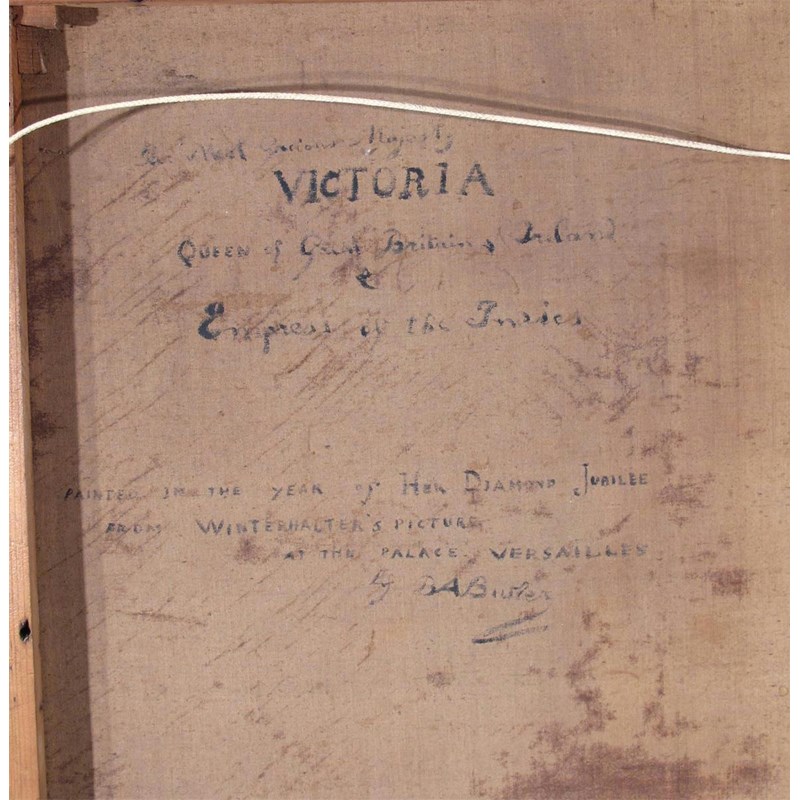 Her Most Gracious Majesty
VICTORIA
QUEEN of Great Britain & Ireland
&
Empress of the Indies
PAINTED IN THE YEAR of HER DIAMOND JUBILEE
FROM WINTERHALTER'S PICTURE
AT THE PALACE VERSAILLES
by BA